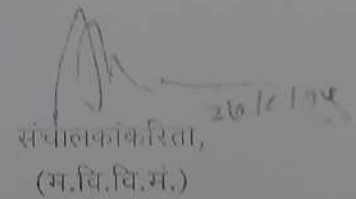 २७/८/१५
संचालकांकरिता,
(म.वि.वि.मं.)